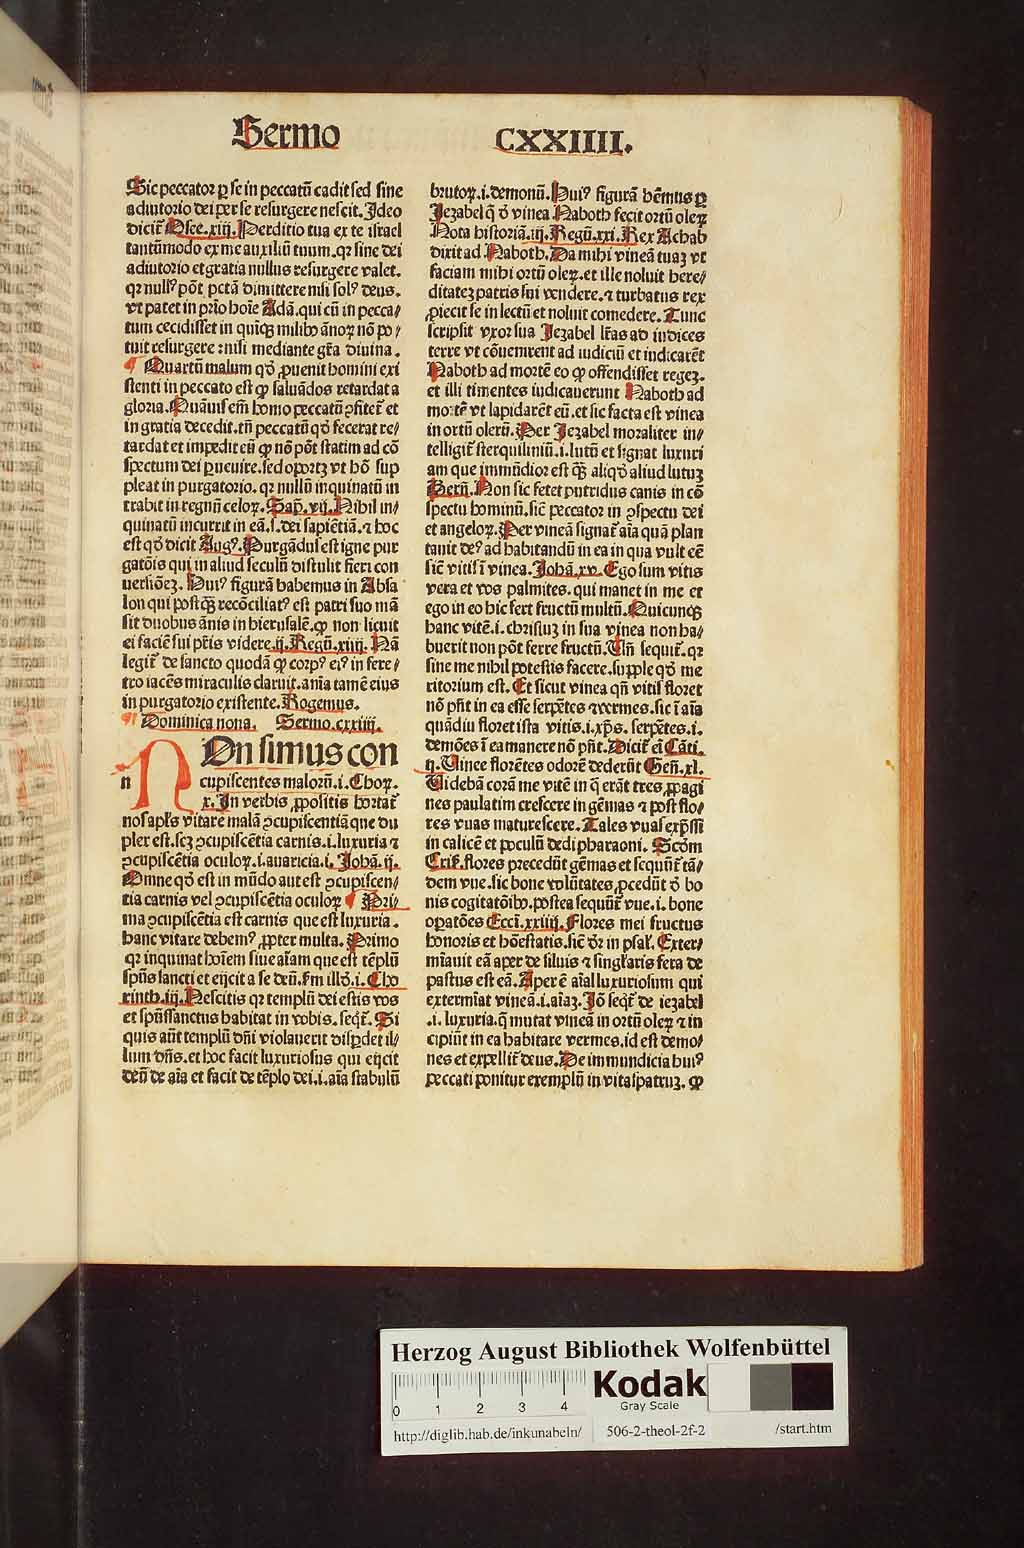 Sermo
CXXIIII.
Sic peccator ꝑ se in peccatū cadit sed sine
adiutorio dei per se resurgere nescit. Ideo
dicit᷑ Osee.xiij. Perditio tua ex te israel
tantūmodo ex me auxiliū tuum. qꝛ sine dei
adiutorio et gratia nullus resurgere valet.
qꝛ nullꝰ pōt pctā dimittere nisi solꝰ deus.
vt patet in pꝛīo hoīe Adā. qui cū in pecca/
tum cecidisset in quīqꝫ milibꝰ ānoꝝ nō po/
tuit resurgere: nisi mediante gr̄a diuina.
¶ Quartū malum qd̓ ꝓuenit homini exi
stenti in peccato est ꝙ saluādos retardat a
gloria. Quāuis em̄ homo peccatū ↄfitet᷑ et
in gratia decedit. tn̄ peccatū qd̓ fecerat re/
tardat et impedit eū ꝙ nō pōt statim ad cō
spectum dei ꝑuenire. sed oportꝫ vt hō sup
pleat in purgatorio. qꝛ nullū inquinatū in
trabit in regnū celoꝝ. Sap̄. vij. Nihil in/
quinatū incurrit in eā .s. dei sapiētiā. ⁊ hoc
est qd̓ dicit Augꝰ. Purgādus est igne pur
gatōis qui in aliud seculū distulit fieri con
uersiōeꝫ. Huiꝰ figurā habemus in Absa
lon qui postqꝫ recōciliatꝰ est patri suo mā
sit duobus ānis in hierusalē. ꝙ non licuit
ei faciē sui pr̄is videre .ij. Regū. xiiij. Nā
legit᷑ de sancto quodā ꝙ corpꝰ eiꝰ in fere/
tro iacēs miraculis claruit. anīa tamē eius
in purgatorio existente. Rogemus.
¶ Dominica nona. Sermo. cxxiiij.
n
NOn simus con
cupiscentes malorū. i. Choꝝ.
x. In verbis ꝓpositis hortat᷑
nos apl̓s vitare malā ↄcupiscentiā que du
pler est. scꝫ ↄcupiscētia carnis. i. luxuria ⁊
ↄcupiscētia oculoꝝ. i. auaricia. i. Johā. ij.
Omne qd̓ est in mūdo aut est ↄcupiscen/
tia carnis vel ↄcupiscētia oculoꝝ ¶ Pri/
ma ↄcupiscētia est carnis que est luxuria.
hanc vitare debemꝰ ꝓpter multa. Primo
qꝛ inquinat hoīem siue aīam que est tēplū
spūs sancti et eijcit a se deū. fm illd̓. i. Cho
rinth. iij. Nescitis qꝛ templū dei estis vos
et spūssanctus habitat in vobis. seqt᷑. Si
quis aūt templū dn̄i violauerit disꝑdet il/
lum dn̄s. et hoc facit luxuriosus qui eijcit
deū de aīa et facit de tēplo dei. i. aīa stabulū
brutoꝝ. i. demonū. Huiꝰ figurā hēmus ꝑ
Jezabel q̄ d̓ vinea Naboth fecit ortū oleꝝ
Nota historiā. iij. Regū. xxi. Rex Achab
dixit ad Naboth. Da mihi vineā tuaꝫ vt
faciam mihi ortū oleꝝ. et ille noluit here/
ditateꝫ patris sui vendere. ⁊ turbatus rex
ꝓiecit se in lectū et noluit comedere. Tunc
scripsit vxor sua Jezabel lr̄as ad iudices
terre vt cōuenirent ad iudiciū et indicarēt
Naboth ad mortē eo ꝙ offendisset regeꝫ.
et illi timentes iudicauerunt Naboth ad
mortē vt lapidarēt eū. et sic facta est vinea
in ortū olerū. Per Jezabel moraliter in/
telligit᷑ sterquiliniū. i. lutū et signat luxuri
am que immūdior est qꝫ aliqd̓ aliud lutuꝫ
Bern̄. Non sic fetet putridus canis in cō
spectu hominū. sic̄ peccator in ↄspectu dei
et angeloꝝ. Per vineā signat᷑ aīa quā plan
tauit deꝰ ad habitandū in ea in qua vult eē
sic̄ vitis ī vinea. Johā. xv. Ego sum vitis
vera et vos palmites. qui manet in me et
ego in eo hic fert fructū multū. Quicunqꝫ
hanc vitē. i. christuꝫ in sua vinea non ha/
buerit non pōt ferre fructū. Un̄ sequit᷑. qꝛ
sine me nihil potestis facere. supple qd̓ me
ritorium est. Et sicut vinea qn̄ vitis floret
nō pn̄t in ea esse serpētes ⁊ vermes. sic ī aīa
quādiu floret ista vitis. i. xp̄s. serpētes. i.
demōes ī ea manere nō pn̄t. Dicit᷑ em̄ Cāti.
ij. Uinee florētes odorē dederūt Gen̄. xl.
Uidebā corā me vitē in q̄ erāt tres ꝓpagi
nes paulatim crescere in gēmas ⁊ post flo/
res vuas maturescere. Tales vuas exp̄ssi
in calicē et poculū dedi pharaoni. Scdm
Cris̄. flores precedūt gēmas et sequūt᷑ tā/
dem vue. sic bone volūtates ꝓcedūt d̓ bo
nis cogitatōibꝰ. postea sequūt᷑ vue. i. bone
oꝑatōes Ecci. xxiiij. Flores mei fructus
honoris et hōestatis. sic̄ dr̄ in psal̓. Exter/
mīauit eā aper de siluis ⁊ singl̓aris fera de
pastus est eā. Aper ē aīal luxuriosum qui
extermīat vineā. i. aīaꝫ. Jō seqt᷑ de iezabel
.i. luxuria. q̄ mutat vineā in ortū oleꝝ ⁊ in
cipiūt in ea habitare vermes. id est demo/
nes et expellit᷑ deus. De immundicia huiꝰ
peccati ponitur exemplū in vitaspatruꝫ. ꝙ
Herzog August Bibliothek Wolfenbüttel
0 1 2 3 4
Kodak
Gray Scale
http://diglib.hab.de/inkunabeln/ 506-2-theol-2f-2 /start.htm